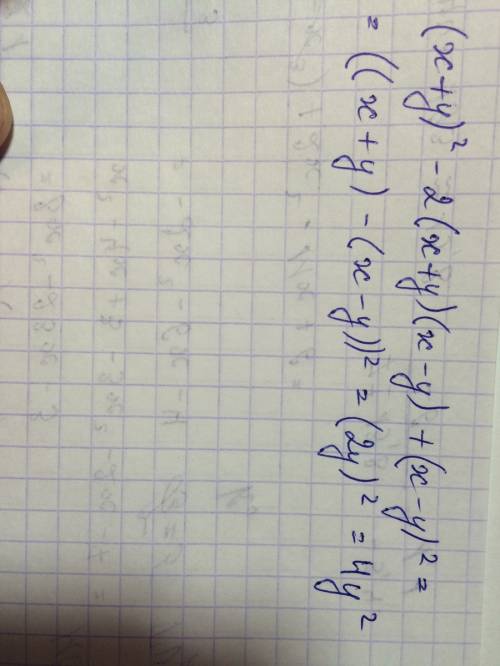 (x+y)² - 2(x+y)(x-y) + (x-y)² =
= ((x+y) - (x-y))² = (2y)² = 4y²